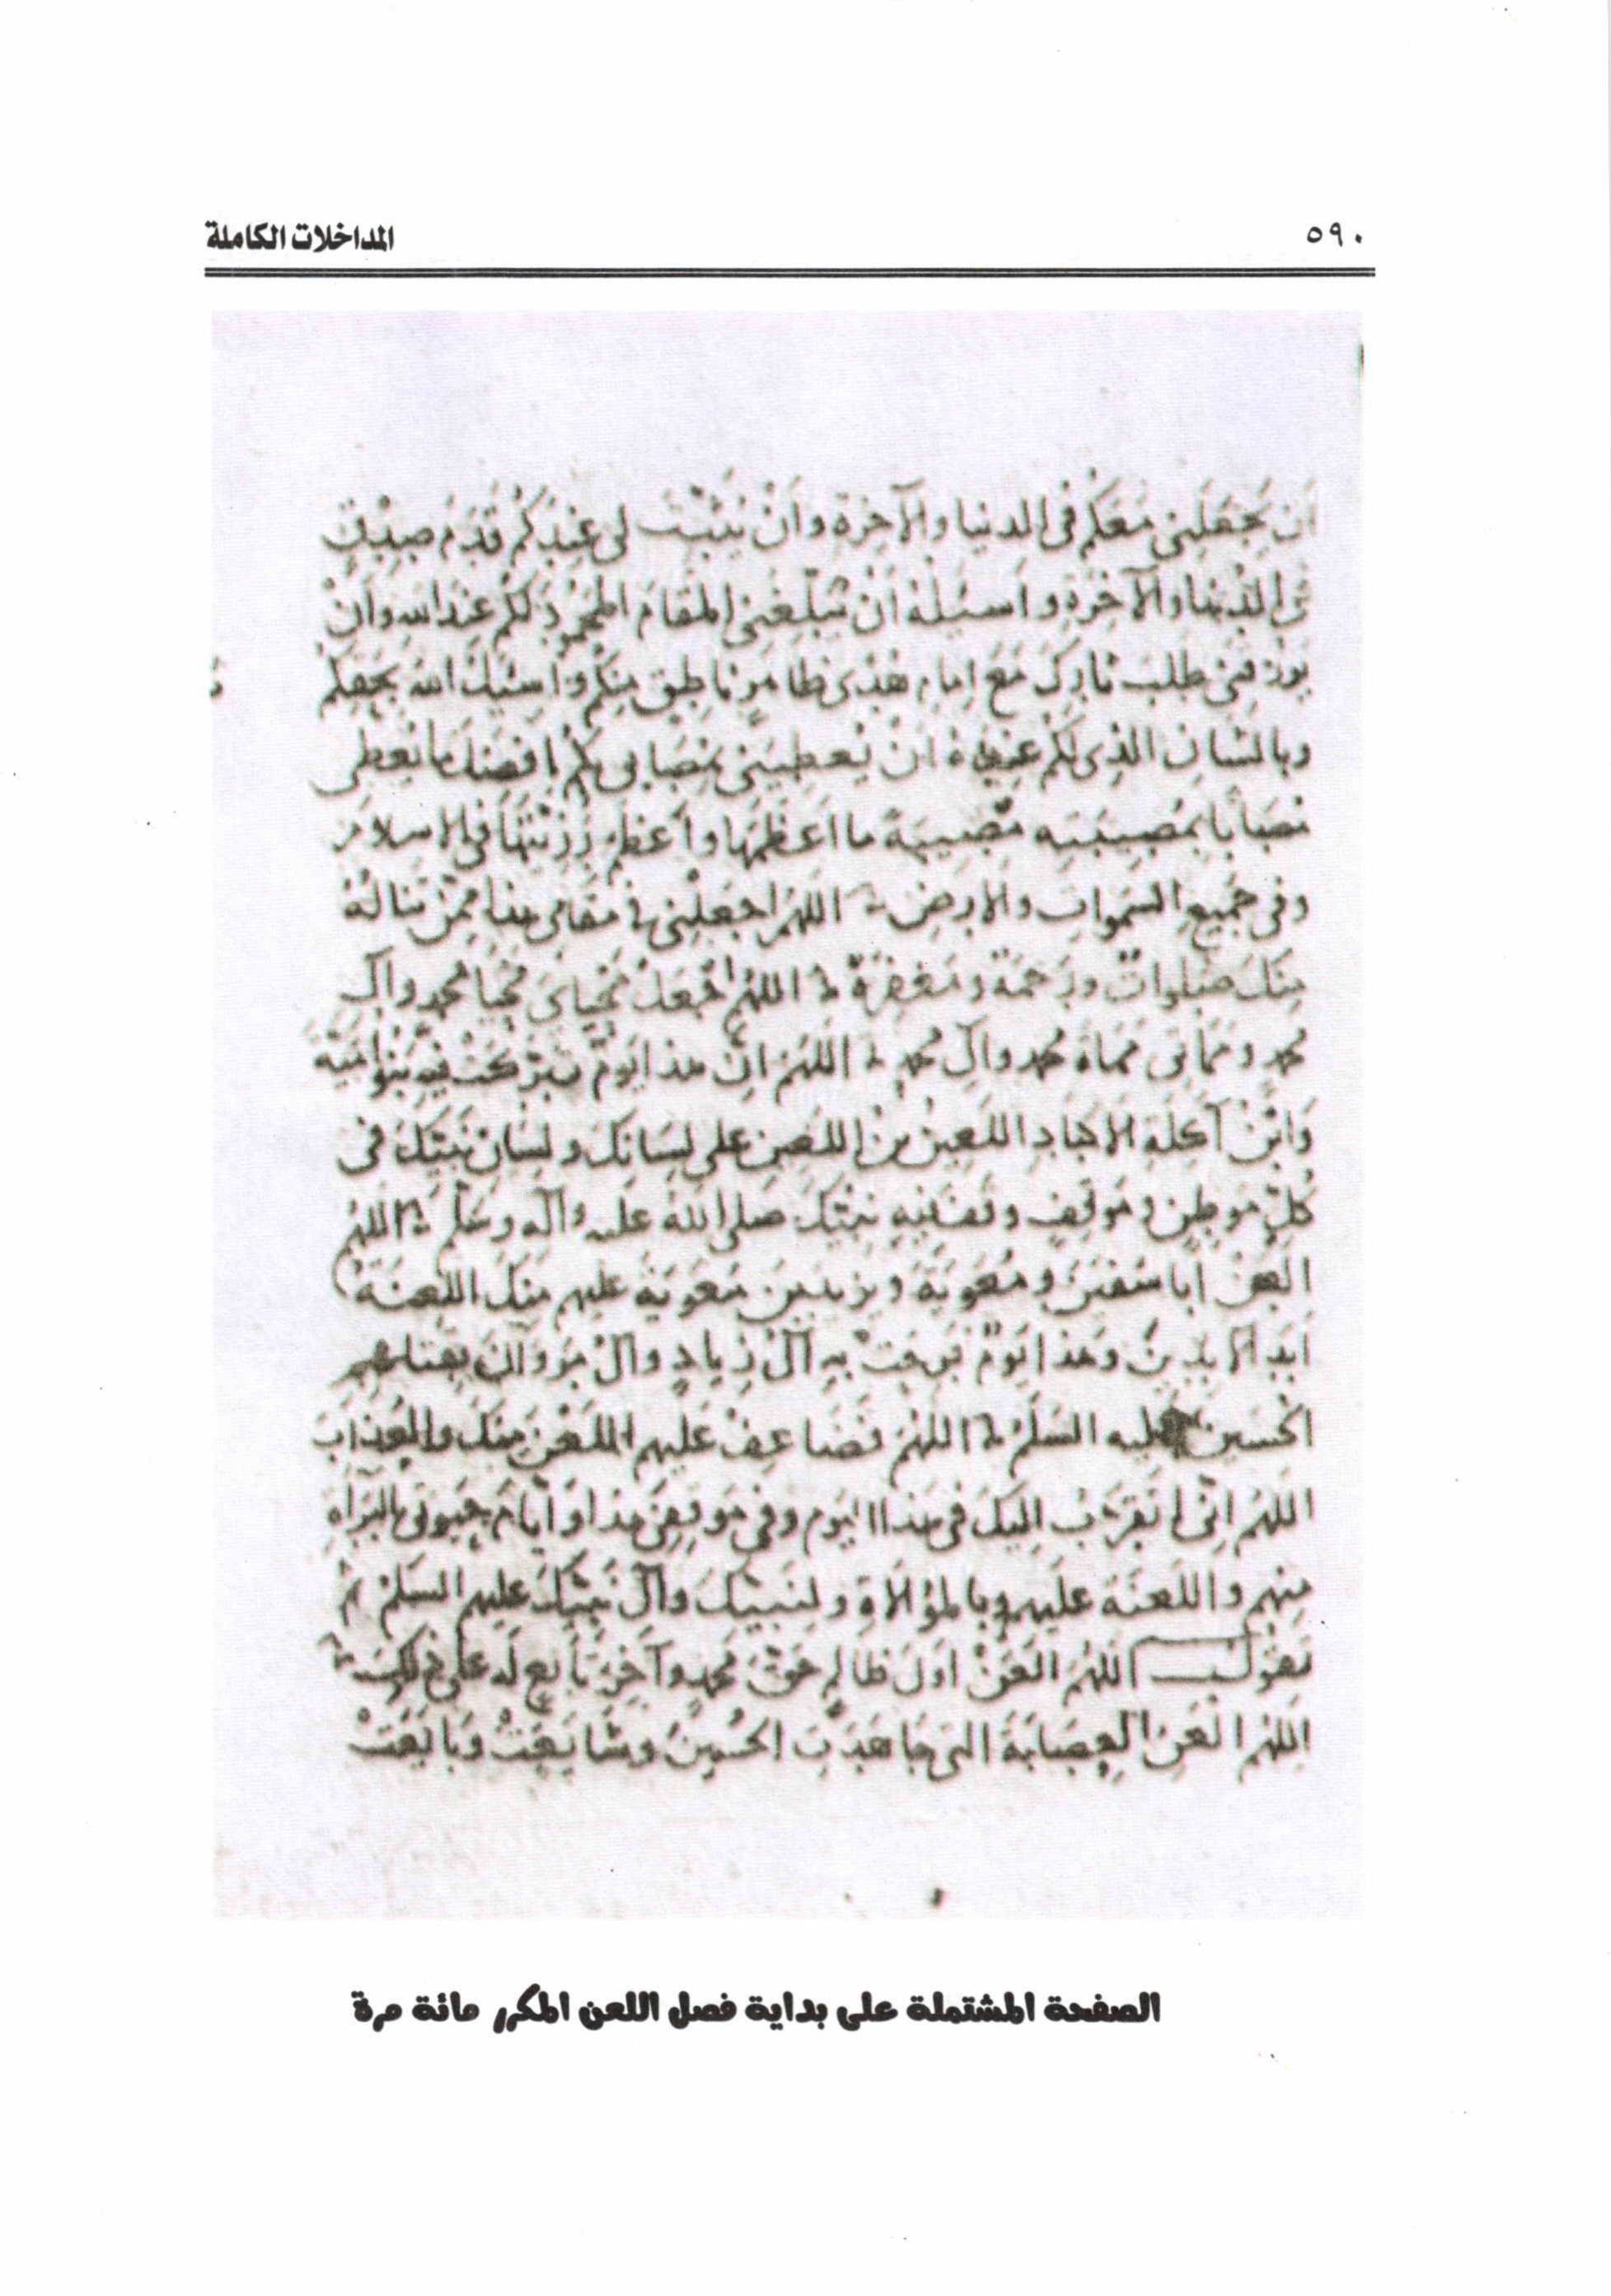 ٥٩٠
المداخلات الكاملة
ان يجعلني معكم في الدنيا والآخرة وأن يثبت لي عندكم قدم صدق
في الدنيا والآخرة واسئله أن يبلغني المقام المحمود لكم عند الله وان
يرزقني طلب ثاركم مع إمام هدى ظاهر ناطق منكم واسئل الله بحقكم
وبالشان الذي لكم عنده ان يعطيني بمصابي بكم افضل ما يعطي
مصابا بمصيبته مصيبة ما اعظمها واعظم رزيتها في الاسلام
وفي جميع السموات والارض اللهم اجعلني في مقامي هذا ممن تناله
منك صلوات ورحمة ومغفرة اللهم اجعل محياي محيا محمد وآل
محمد ومماتي ممات محمد وآل محمد اللهم ان هذا يوم تبركت فيه بنو امية
وابن آكلة الاكباد اللعين بن اللعين على لسانك ولسان نبيك في
كل موطن وموقف وقف فيه نبيك صلى الله عليه وآله وسلم اللهم
العن ابا سفين ومعوية ويزيد بن معوية عليهم منك اللعنة
ابد الآبدين وهذا يوم فرحت به آل زياد وآل مروان بقتلهم
الحسين عليه السلم اللهم فضاعف عليهم اللعن منك والعذاب
اللهم اني اتقرب اليك في هذا اليوم وفي موقفي هذا وأيام حيوتي بالبراءة
منهم واللعنة عليهم وبالموالاة ولنبيك وآل نبيك عليهم السلم ثم
تقول اللهم العن اول ظالم ظلم حق محمد وآخر تابع له على ذلك
اللهم العن العصابة التي جاهدت الحسين وشايعت وبايعت
الصفحة المشتملة على بداية فصل اللعن المكرر مائة مرة